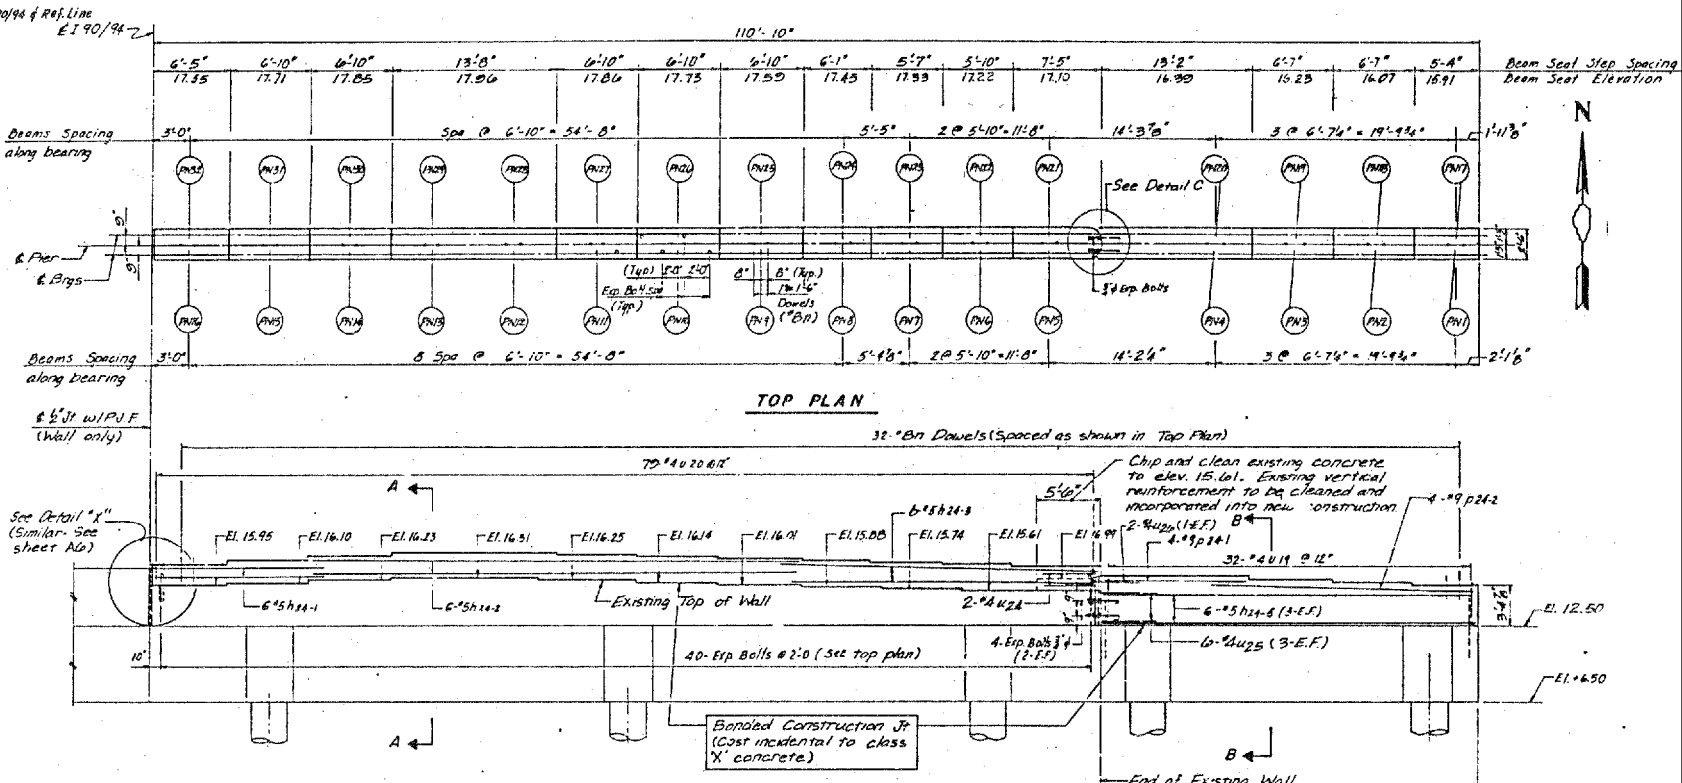 90/94 & Ref. Line
℄ I 90/94
110'-10"
6'-5" 6'-10" 6'-10" 13'-8" 6'-10" 6'-10" 6'-10" 6'-1" 5'-7" 5'-10" 7'-5" 13'-2" 6'-7" 6'-7" 5'-4" Beam Seat Step Spacing
17.71 17.85 17.96 17.86 17.73 17.59 17.45 17.33 17.22 17.10 16.39 16.23 16.07 15.91 Beam Seat Elevation
N
Beams Spacing
along bearing
3'-0" Spa @ 6'-10" = 54'-8" 5'-5" 2 @ 5'-10" = 11'-8" 3 @ 6'-7¼" = 19'-9¾"
PN32 PN31 PN30 PN29 PN28 PN27 PN26 PN25 PN24 PN23 PN22 PN21 PN20 PN19 PN18 PN17
See Detail C
9"
9"
℄ Pier
℄ Brgs
(Typ) 2'-0"
Exp. Bolt spa
(Typ.)
8" 8" (Typ.)
Dowels
(#8n)
Exp. Bolts
PN16 PN15 PN14 PN13 PN12 PN11 PN10 PN9 PN8 PN7 PN6 PN5 PN4 PN3 PN2 PN1
Beams Spacing
along bearing
3'-0" 8 Spa @ 6'-10" = 54'-8" 2 @ 5'-10" = 11'-8" 14'-2¼" 3 @ 6'-7¼" = 19'-9¾" 2'-1⅛"
TOP PLAN
℄ ½" Jt. w/P.J.F.
(Wall only)
32-#8n Dowels (Spaced as shown in Top Plan)
79-#4 u20 @12"
Chip and clean existing concrete
to elev. 15.61. Existing vertical
reinforcement to be cleaned and
incorporated into new construction
5'-6"
A
B
See Detail "X"
(Similar-See
sheet A6)
6-#5h24-3
2-#4u26 (1-E.F.)
4-#9p24-1
4-#9p24-2
El. 15.95 El. 16.10 El. 16.23 El. 16.31 El. 16.25 El. 16.14 El. 16.01 El. 15.88 El. 15.74 El. 15.61
32-#4 u19 @ 12"
6-#5h24-1
6-#5h24-2
Existing Top of Wall
2-#4u24
6-#5h24-5 (3-E.F.)
El. 12.50
10"
40-Exp. Bolts @ 2'-0 (See top plan)
4-Exp. Bolts ¾"φ
(2-E.F.)
6-#4u25 (3-E.F.)
El. +6.50
Bonded Construction Jt
(Cost incidental to class
'X' concrete)
A
B
End of Existing Wall